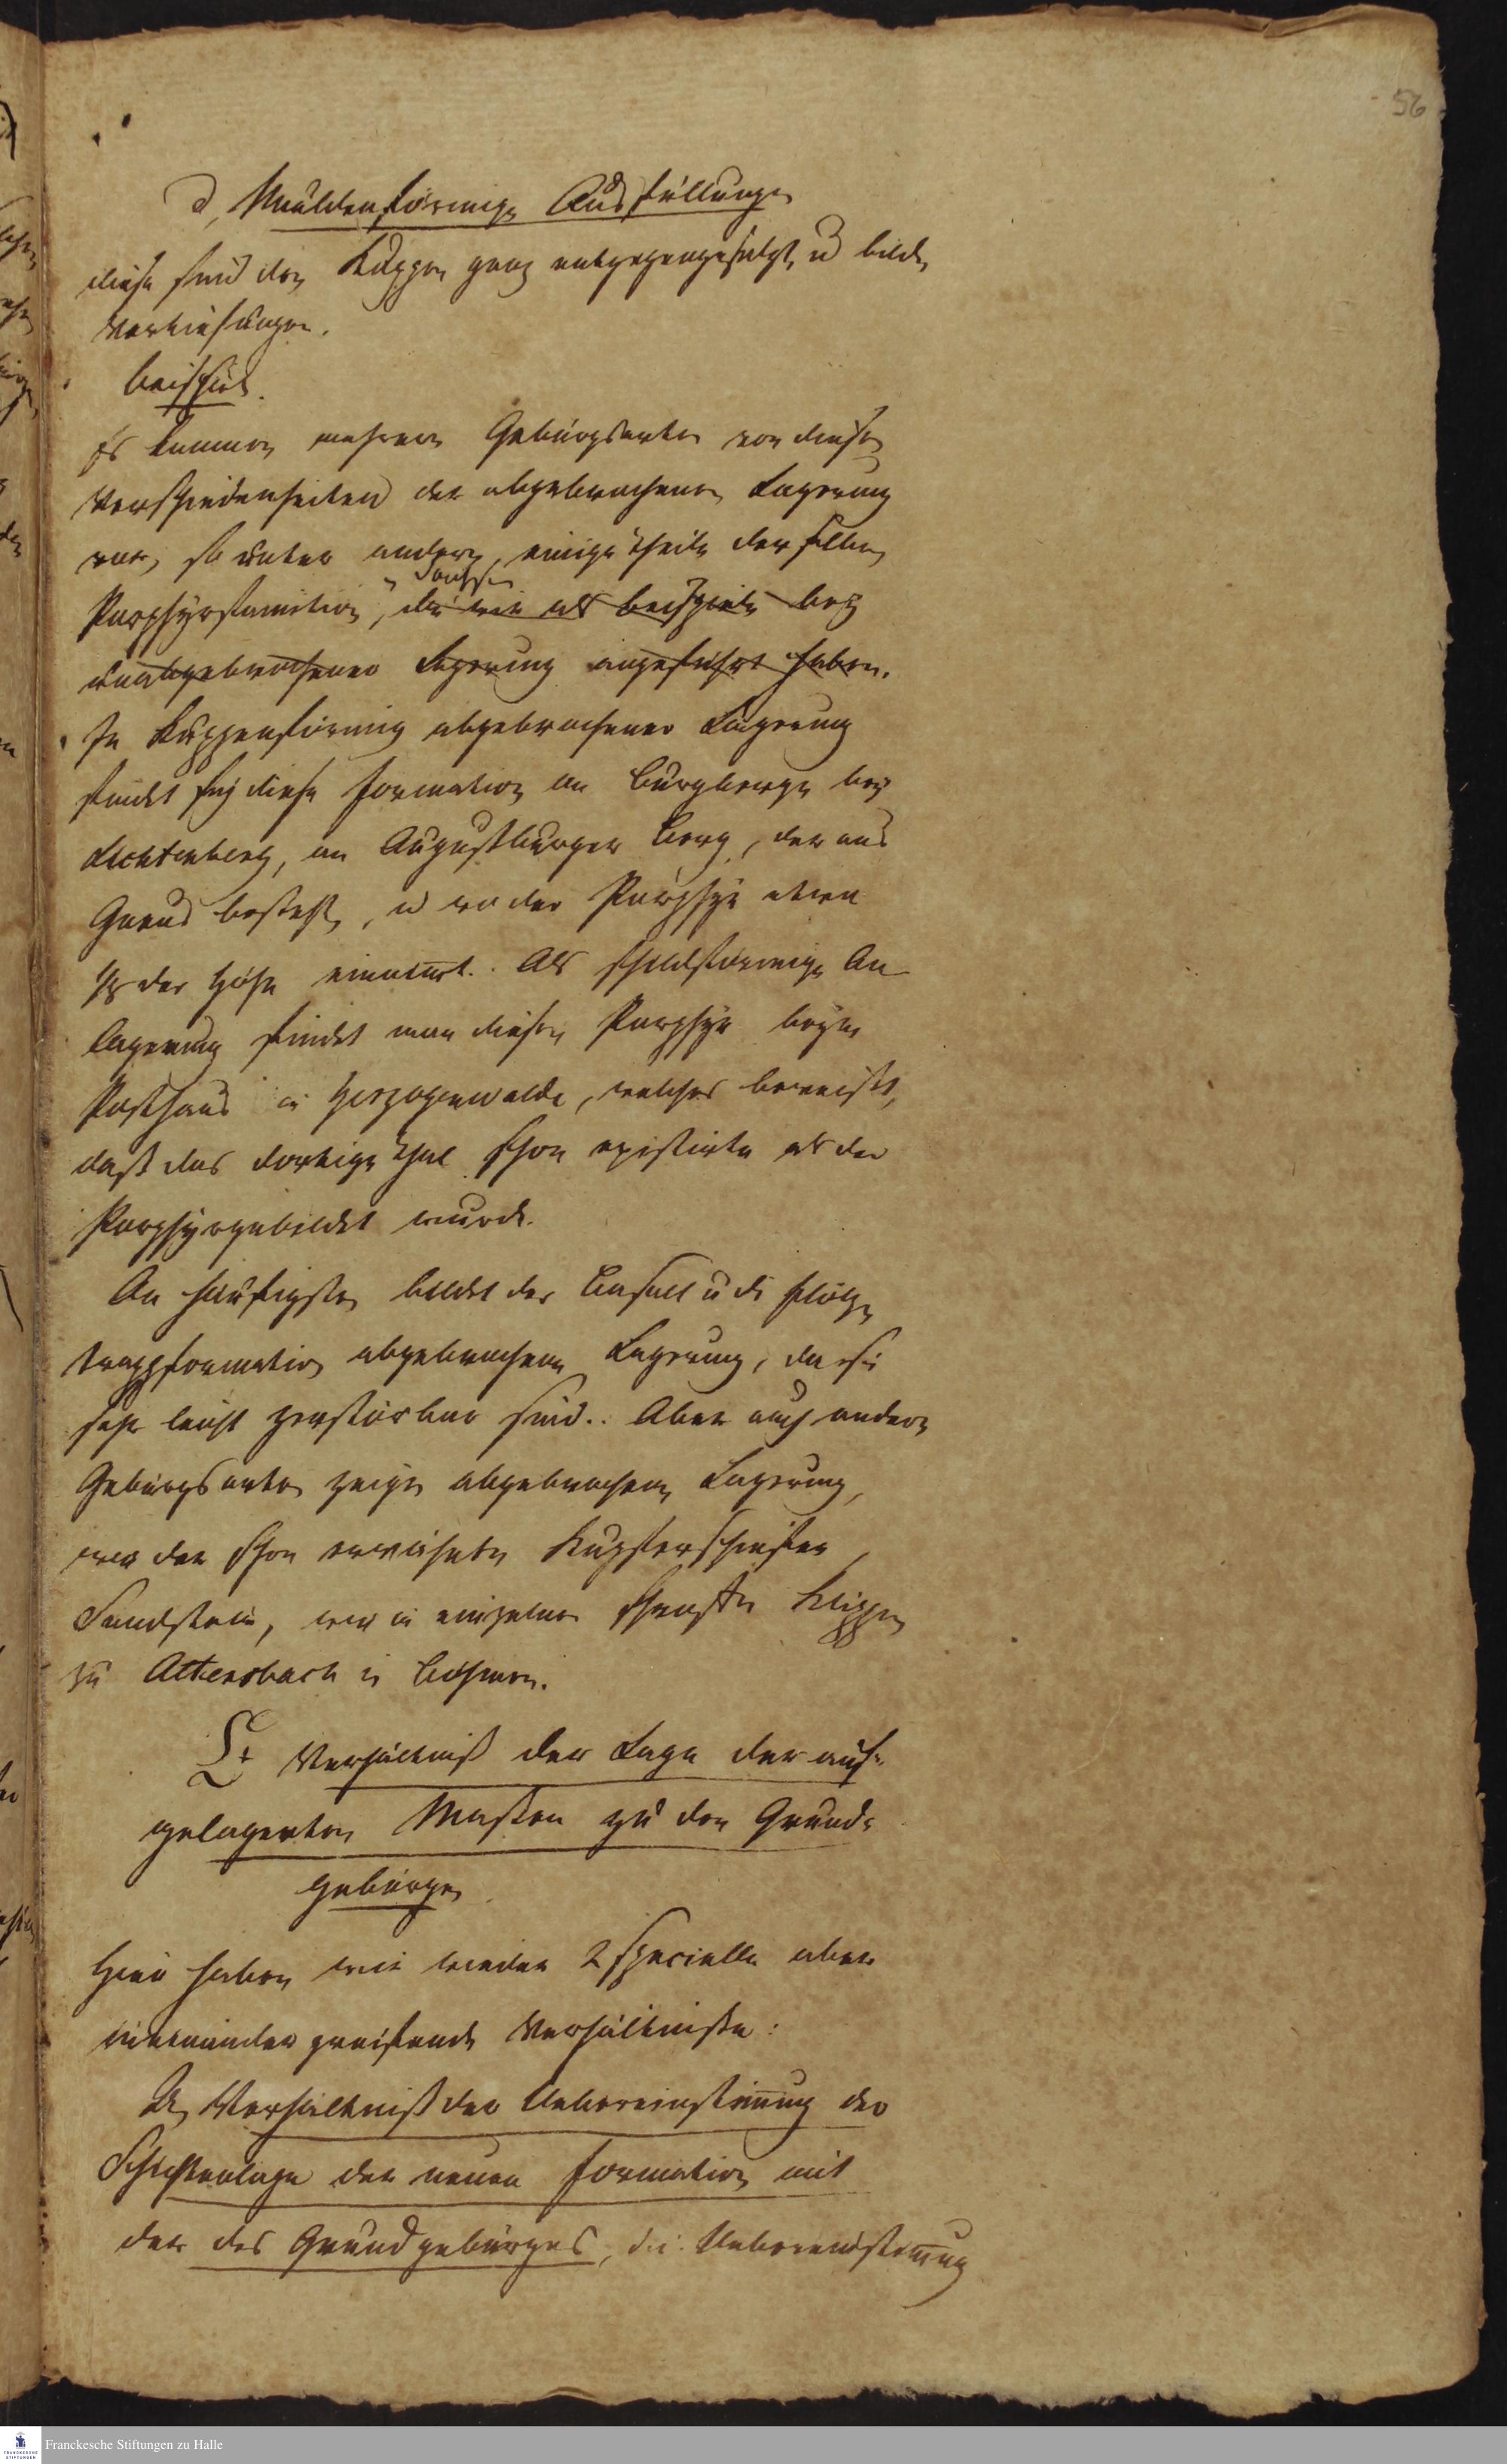 56
d, Muldenförmige Ausfüllungen
diese sind den Kuppen ganz entgegengesetzt, u bilden
Vertiefungen.
Beispiel.
Es kommen mehrere Gebürgsarten von diesen
Verschiedenheiten der abgebrochenen Lagerung
vor, so unter andern einige Theile derselben
in Sachsen
Porphyrformation, die wir als Beispiele bey
unabgebrochener Lagerung angeführt haben.
In Kuppenförmig abgebrochener Lagerung
findet sich diese Formation am Burgberge bey
Lichtenberg, am Augustburger Berg, der aus
Gneus besteht, u wo der Porphyr etwa
der Höhe einnimt. Als schildförmige An
lagerung findet man diesen Porphyr beym
Posthaus in Herzogenwalde, welches beweißt,
daß das dortige Thal schon existirte als der
Porphyr gebildet wurde.
Am häufigsten bildet der Basalt u die Flötz
trappformation abgebrochene Lagerung, da sie
sehr leicht zerstörbar sind. Aber auch andere
Gebürgsarten zeigen abgebrochene Lagerung,
wie der schon erwähnte Kupferschiefer,
Sandstein, wie in einzelnen Klippen
zu Attersbach in Böhmen.
Verhältniß der Lage der auf-
gelagerten Massen zu den Grund-
gebürgen
Hier haben wir wieder 2 specielle aber
ineinander greifende Verhältnisse:
A, Verhältniß der Uebereinstimmung der
Schichtenlage der neuen Formation mit
der des Grundgebürges, d.i. Uebereinstimmung
Franckesche Stiftungen zu Halle